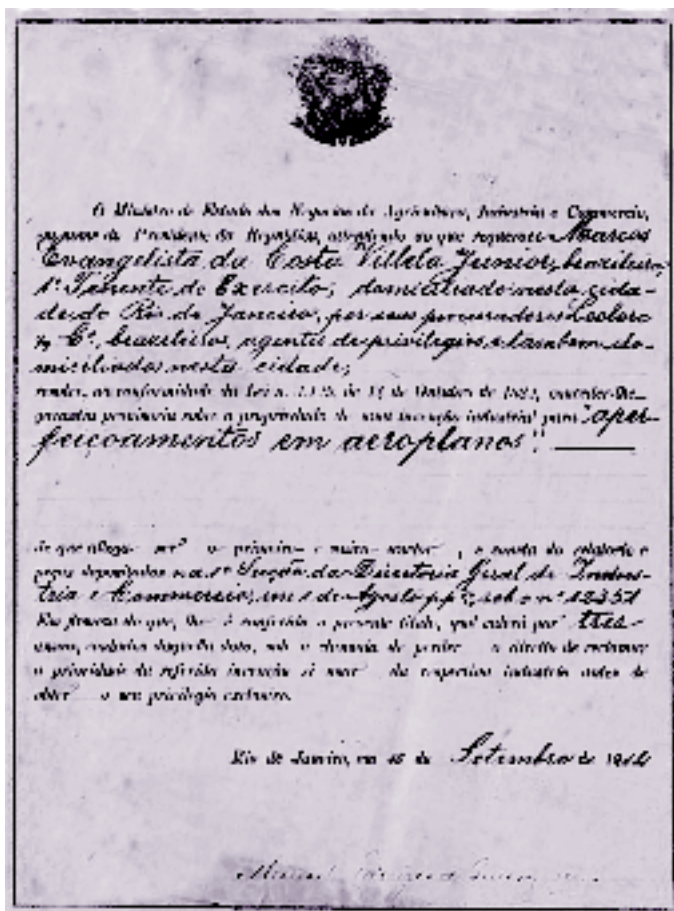 O Ministro de Estado dos Negocios da Agricultura, Industria e Commercio,
em nome do Presidente da Republica, attendendo ao que requereu Marcos
Evangelista da Costa Villela Junior, brazileiro,
1º Tenente do Exercito, domiciliado nesta cida-
de do Rio de Janeiro, por seus procuradores
& Cª, brazileiros, agentes de privilegios, e tambem do-
miciliados nesta cidade,
resolve, na conformidade da Lei n. de 14 de Outubro de conceder-lhe
garantia provisoria sobre a propriedade de uma invenção industrial para "aper-
feiçoamentos em aeroplanos".
de que allega ser o primeiro e unico auctor, e consta do relatorio e
peças depositados na 1ª Secção da Directoria Geral de Indus-
tria e Commercio, em 1 de Agosto pp, sob o nº 12351
Em firmeza do que, lhe é conferido o presente titulo, que valerá por tres
annos, contados desta data, sob a clausula de perder o direito de reclamar
a prioridade da referida invenção si usar da respectiva industria antes de
obter o seu privilegio exclusivo.
Rio de Janeiro, em de Setembro de